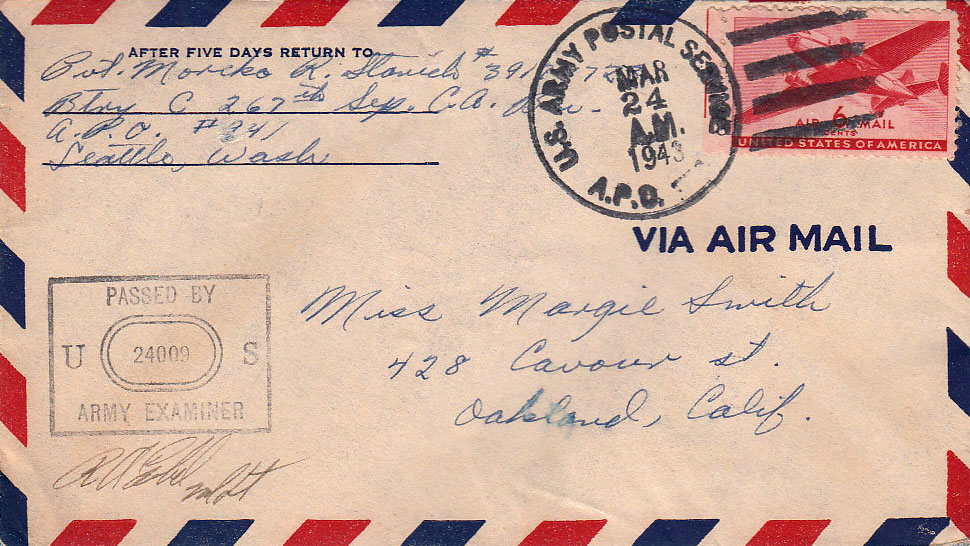 AFTER FIVE DAYS RETURN TO
Pvt. R. #
Btry C 267th Sep. C.A. Bn.
A.P.O. #941
Seattle, Wash
U.S. ARMY POSTAL SERVICE
MAR
24
A.M.
1943
A.P.O.
AIR 6 MAIL
CENTS
UNITED STATES OF AMERICA
VIA AIR MAIL
PASSED BY
U 24009 S
ARMY EXAMINER
Miss Margie Smith
428 Cavour st.
Oakland, Calif.